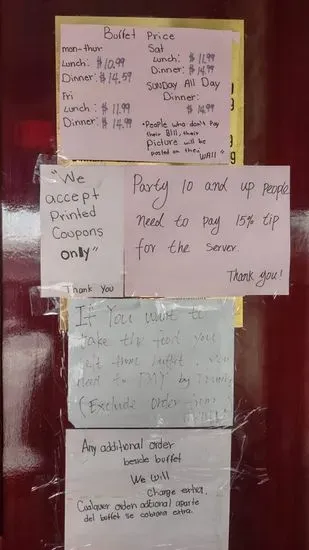 Buffet Price
mon-thur
Lunch: $10.99
Dinner: $14.59
Fri
Lunch: $11.99
Dinner: $14.99
Sat
Lunch: $11.99
Dinner: $14.99
SUNDAY All Day
Dinner:
$14.99
*People who don't Pay
their Bill, their
Picture will be
posted on the
"WALL"
"We
accept
Printed
Coupons
only"
Thank you
Party 10 and up people
need to pay 15% tip
for the server.
Thank you!
If You want to
take the food you
left from buffet, you
need to PAY by
(Exclude order from
Any additional order
beside buffet
We will
Charge extra.
Cualquier orden adicional aparte
del buffet se cobrara extra.